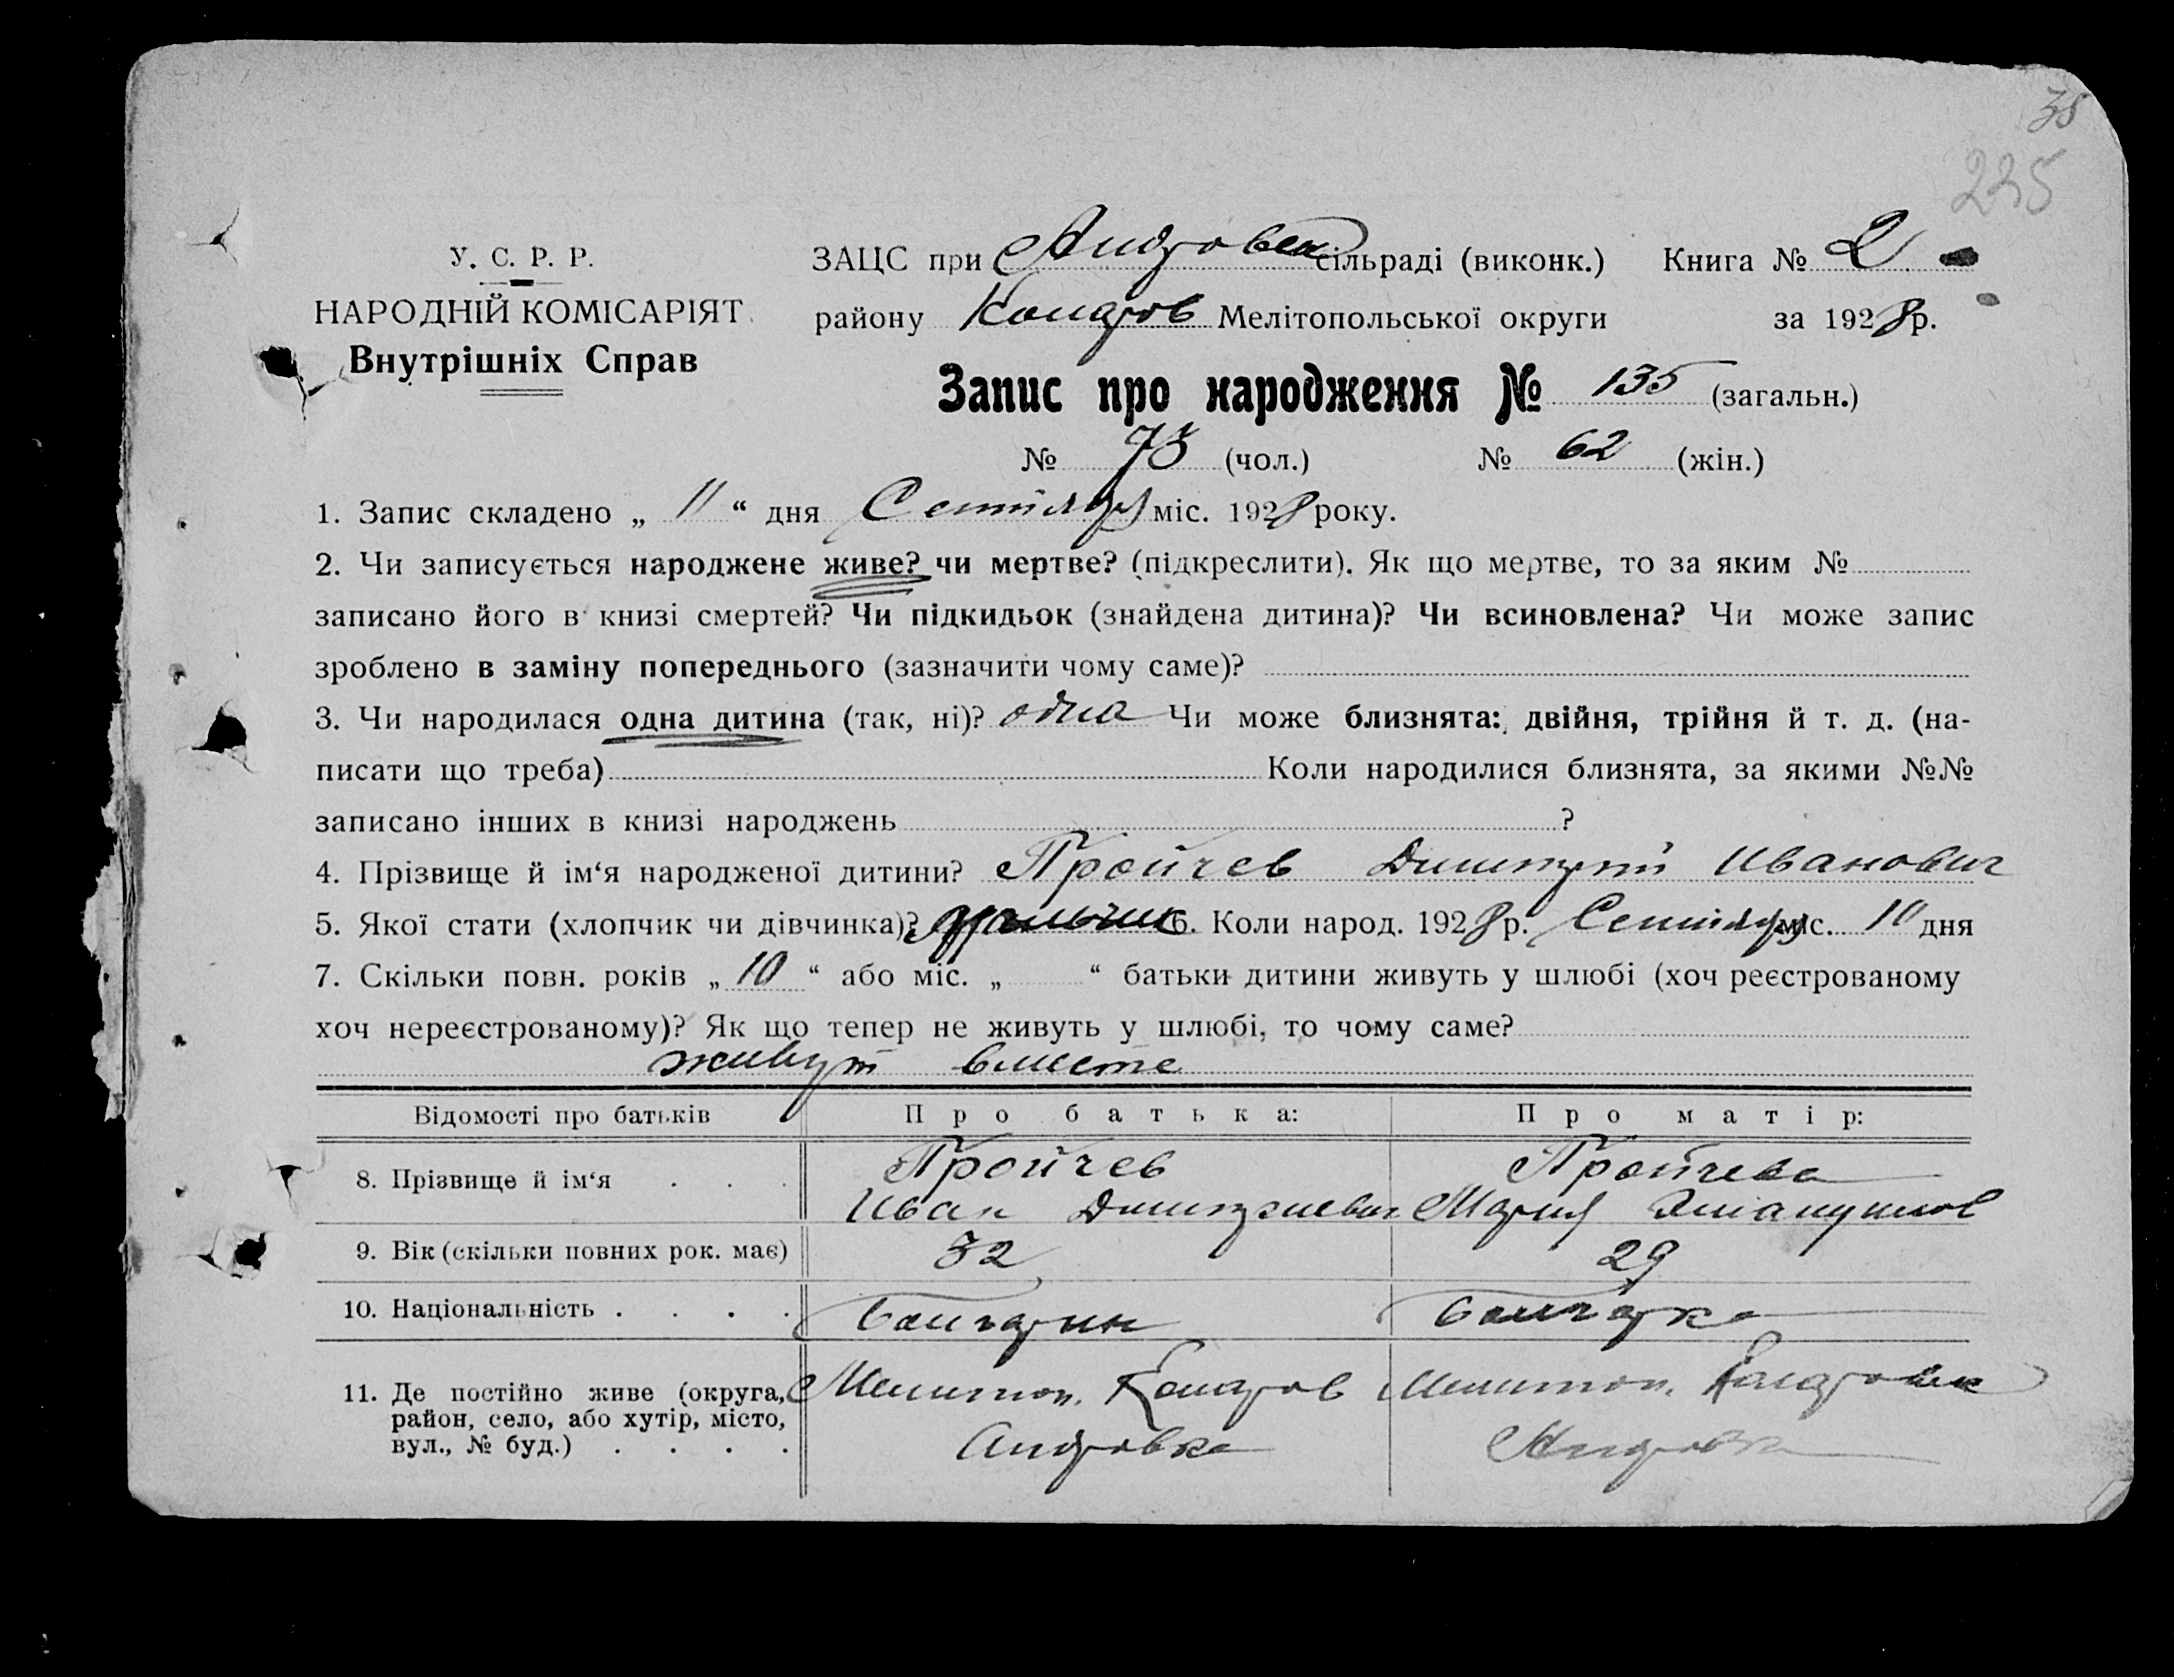 38
235
У. С. Р. Р.
НАРОДНІЙ КОМІСАРІЯТ
Внутрішніх Справ
ЗАЦС при Андровск сільраді (виконк.) Книга № 2
району Коларов Мелітопольської округи за 1928 р.
Запис про народження № 135 (загальн.)
№ 73 (чол.) № 62 (жін.)
1. Запис складено „ 11 “ дня Сентября міс. 1928 року.
2. Чи записується народжене живе? чи мертве? (підкреслити). Як що мертве, то за яким №
записано його в книзі смертей? Чи підкидьок (знайдена дитина)? Чи всиновлена? Чи може запис
зроблено в заміну попереднього (зазначити чому саме)?
3. Чи народилася одна дитина (так, ні)? одна Чи може близнята: двійня, трійня й т. д. (на-
писати що треба) Коли народилися близнята, за якими №№
записано інших в книзі народжень ?
4. Прізвище й ім‘я народженої дитини? Пройчев Дмитрий Иванович
5. Якої стати (хлопчик чи дівчинка)? мальчик 6. Коли народ. 1928 р. Сентября міс. 10 дня
7. Скільки повн. років „ 10 “ або міс. „ “ батьки дитини живуть у шлюбі (хоч реєстрованому
хоч нереєстрованому)? Як що тепер не живуть у шлюбі, то чому саме?
живут вместе
Відомості про батьків Про батька: Про матір:
8. Прізвище й ім‘я . . . Пройчев Пройчева
Иван Дмитриевич Мария
9. Вік (скільки повних рок. має) 32 29
10. Національність . . . . болгарин болгарка
11. Де постійно живе (округа, Мелитоп. Коларов Мелитоп. Коларовск
район, село, або хутір, місто,
вул., № буд.) . . . . Андровка Андровка